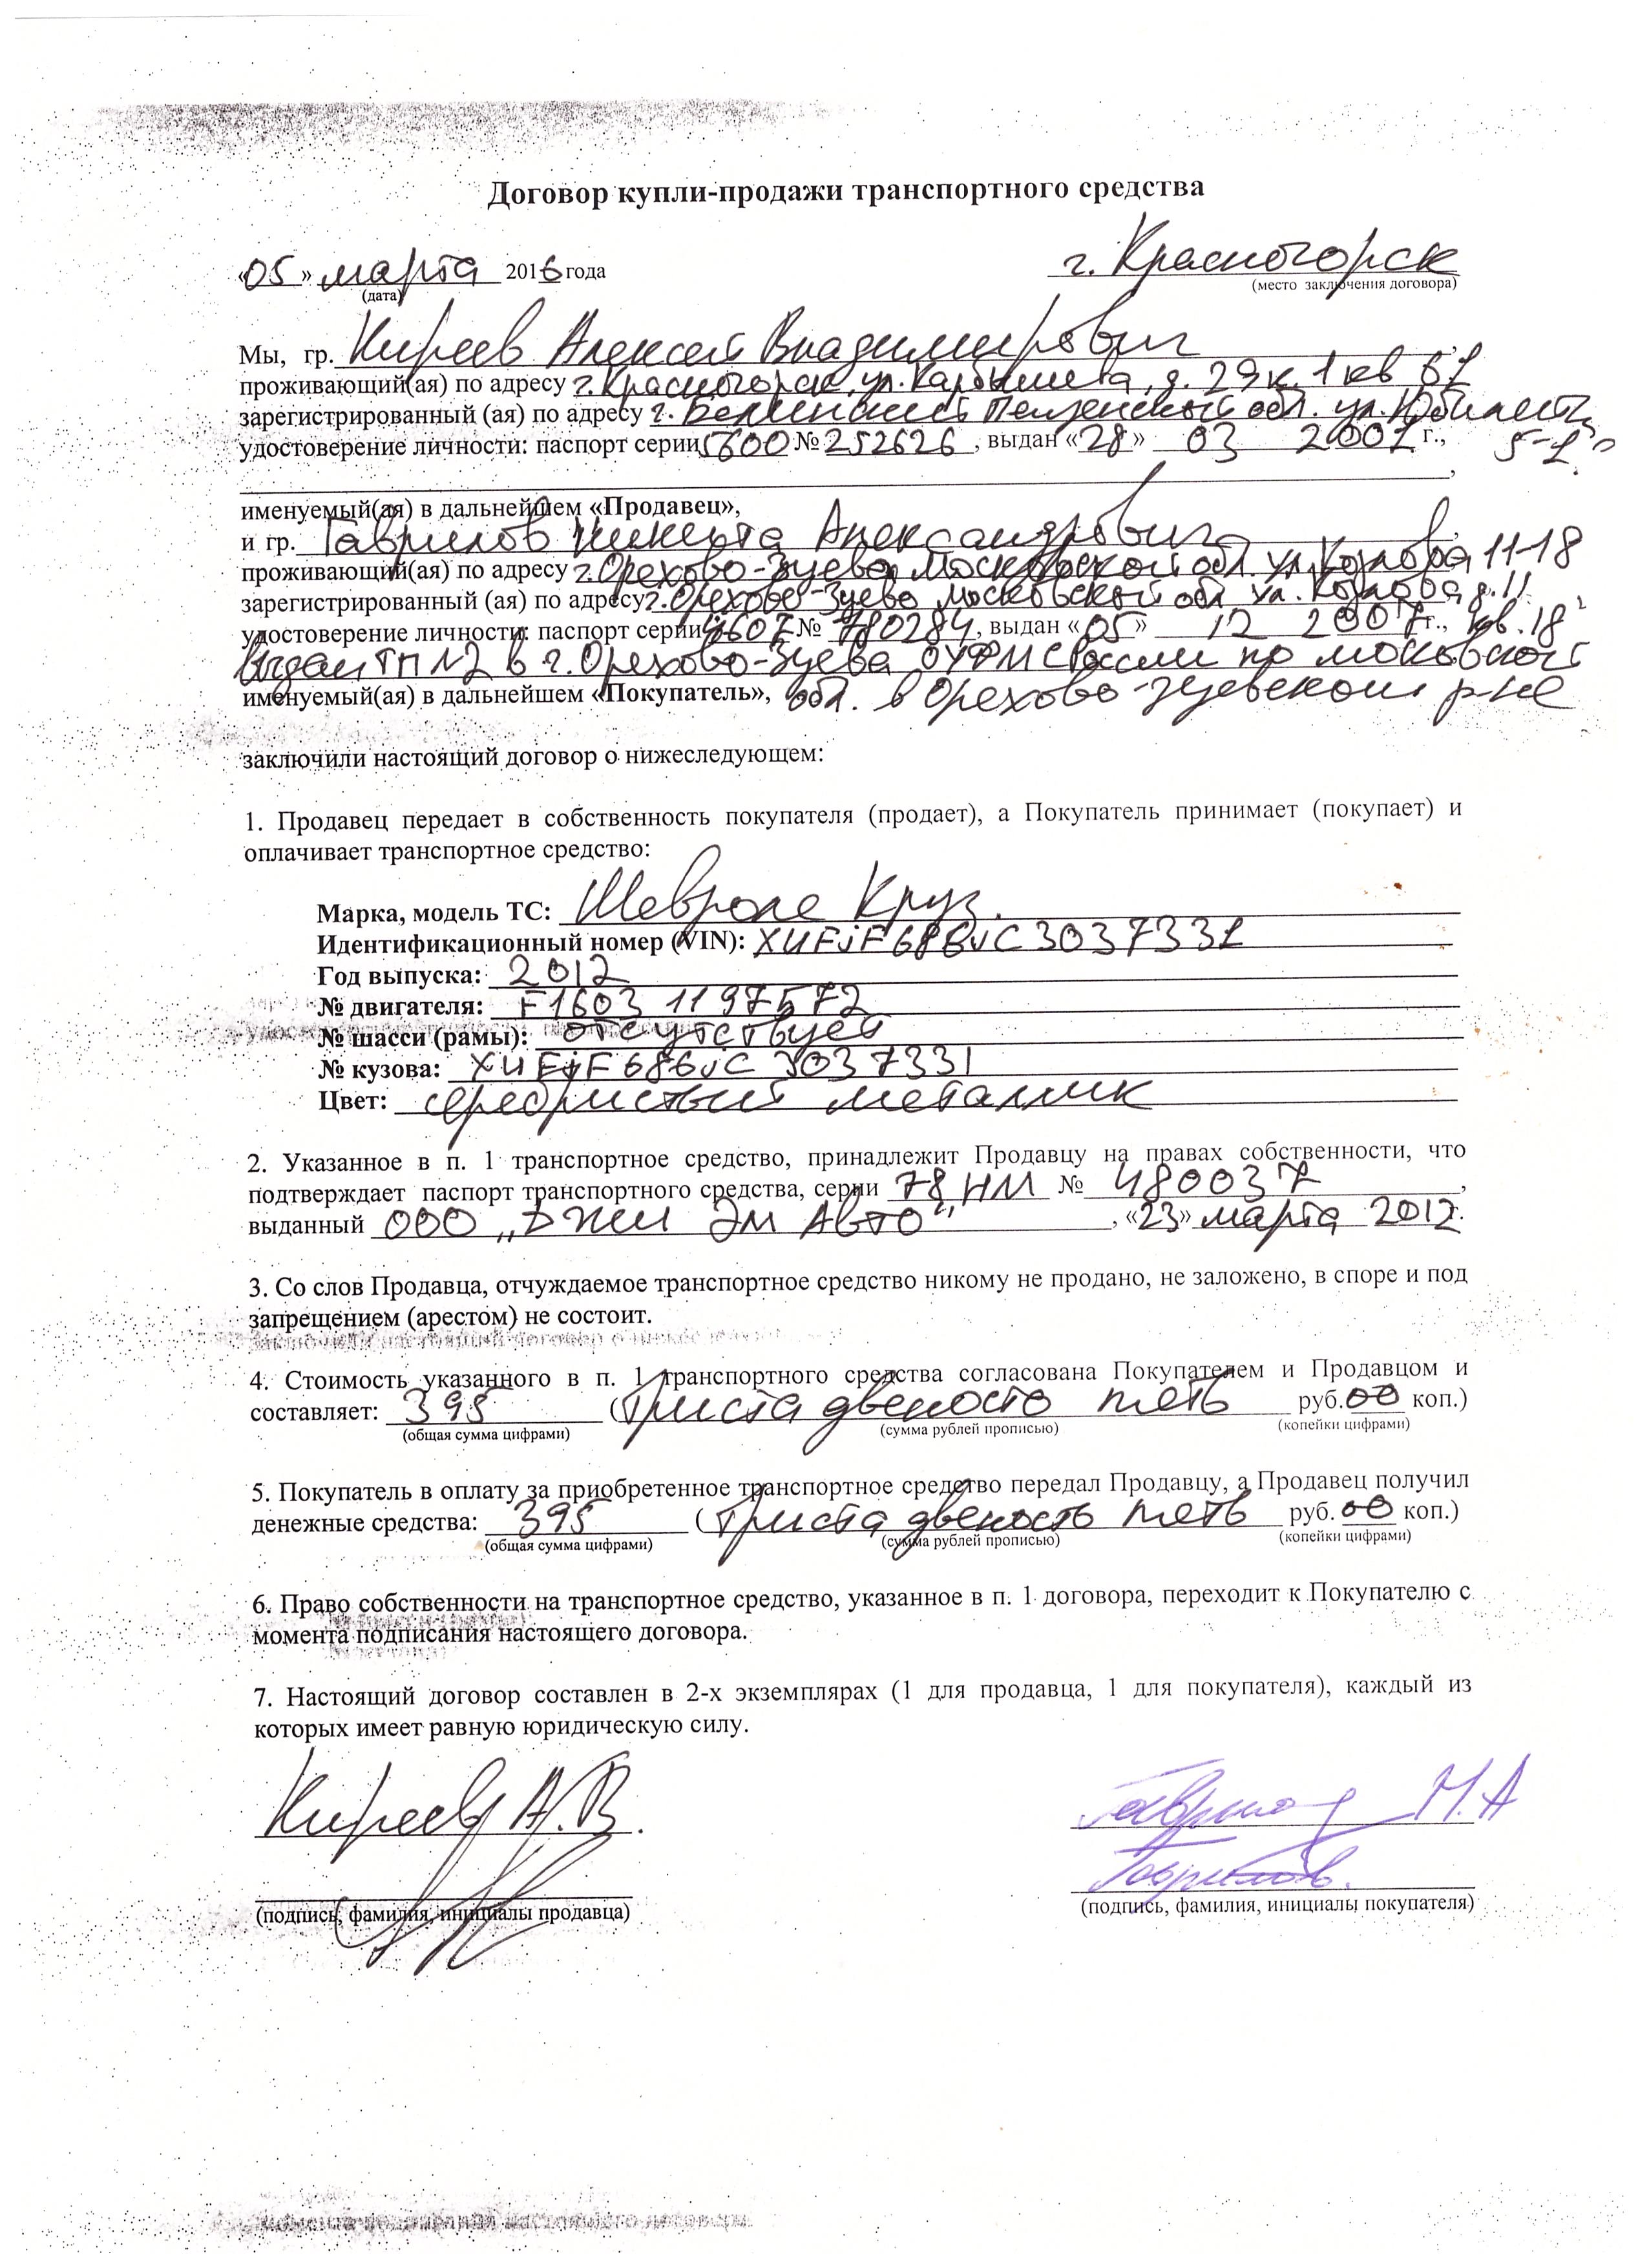 Договор купли-продажи транспортного средства
«05» марта 2016 года г. Красногорск
(дата) (место заключения договора)
Мы, гр. Киреев Алексей Владимирович,
проживающий(ая) по адресу г. Красногорск, ул. Карбышева, д. 29 к. 1 кв 61
зарегистрированный (ая) по адресу г. Пензенской обл. ул.
удостоверение личности: паспорт серии 5600 № 252626, выдан «28» 03 2001 г., 5-1
именуемый(ая) в дальнейшем «Продавец»,
и гр. Гаврилов Никита Александрович,
проживающий(ая) по адресу г. Орехово-Зуево Московской обл. ул. Козлова 11-18
зарегистрированный (ая) по адресу г. Орехово-Зуево Московской обл ул. Козлова д. 11
удостоверение личности: паспорт серии 4607 № 780284, выдан «05» 12 2007 г., кв. 18
Выдан ТП №2 в г. Орехово-Зуева ОУФМС России по московской
именуемый(ая) в дальнейшем «Покупатель», обл. в Орехово-зуевском р-не
заключили настоящий договор о нижеследующем:
1. Продавец передает в собственность покупателя (продает), а Покупатель принимает (покупает) и
оплачивает транспортное средство:
Марка, модель ТС: Шевроле Круз.
Идентификационный номер (VIN): XUFJF686JC3037331
Год выпуска: 2012
№ двигателя: F1603 1197572
№ шасси (рамы): отсутствует
№ кузова: XUFJF686JC 3037331
Цвет: серебристый металлик
2. Указанное в п. 1 транспортное средство, принадлежит Продавцу на правах собственности, что
подтверждает паспорт транспортного средства, серии 78 НМ № 480037,
выданный ООО „Джи Эм Авто“, «23» марта 2012г.
3. Со слов Продавца, отчуждаемое транспортное средство никому не продано, не заложено, в споре и под
запрещением (арестом) не состоит.
4. Стоимость указанного в п. 1 транспортного средства согласована Покупателем и Продавцом и
составляет: 395 (Триста двеносто пять руб. 00 коп.)
(общая сумма цифрами) (сумма рублей прописью) (копейки цифрами)
5. Покупатель в оплату за приобретенное транспортное средство передал Продавцу, а Продавец получил
денежные средства: 395 (Триста двеность пять руб. 00 коп.)
(общая сумма цифрами) (сумма рублей прописью) (копейки цифрами)
6. Право собственности на транспортное средство, указанное в п. 1 договора, переходит к Покупателю с
момента подписания настоящего договора.
7. Настоящий договор составлен в 2-х экземплярах (1 для продавца, 1 для покупателя), каждый из
которых имеет равную юридическую силу.
Киреев А.В. Гаврилов Н.А
Гаврилов.
(подпись, фамилия, инициалы продавца) (подпись, фамилия, инициалы покупателя)